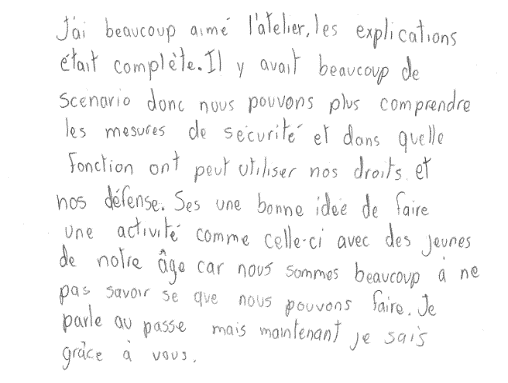 J'ai beaucoup aimé l'atelier, les explications
était complète. Il y avait beaucoup de
scenario donc nous pouvons plus comprendre
les mesures de sécurité et dans quelle
fonction ont peut utiliser nos droits et
nos défense. Ses une bonne idée de faire
une activité comme celle-ci avec des jeunes
de notre âge car nous sommes beaucoup à ne
pas savoir se que nous pouvons faire. Je
parle au passe mais maintenant je sais
grâce à vous.